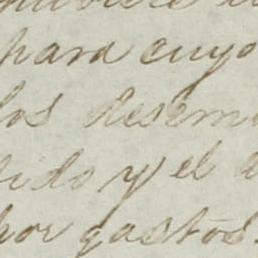 para cuyo
los desem
bido y el
por gastos